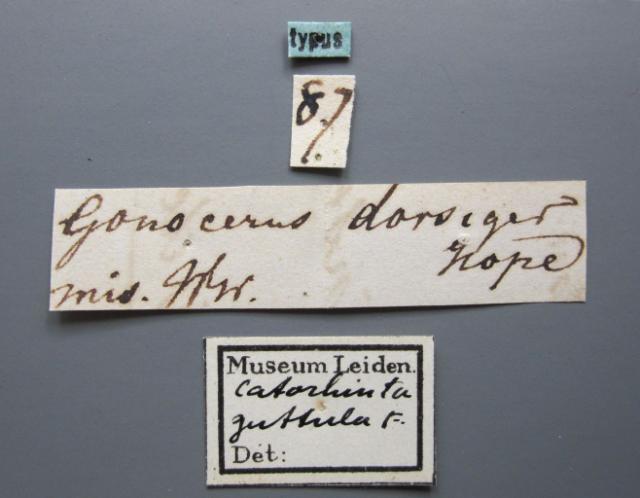 typus
87.
Gonocerus dorsiger
Hope
mis.
Museum Leiden.
Catorhinta
guttula F.
Det: